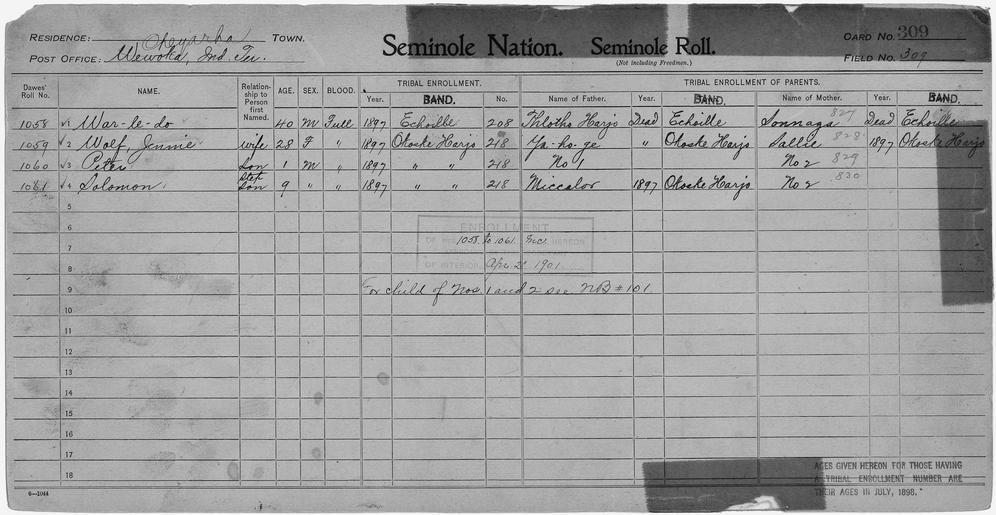 RESIDENCE: Cheyarha TOWN.
POST OFFICE: Wewoka, Ind. Ter.
Seminole Nation. Seminole Roll.
(Not including Freedmen.)
CARD NO. 309
FIELD NO. 309
Dawes' Roll No. NAME. Relationship to Person first Named. AGE. SEX. BLOOD. TRIBAL ENROLLMENT. TRIBAL ENROLLMENT OF PARENTS.
Year. BAND. No. Name of Father. Year. BAND. Name of Mother. Year. BAND.
1058 1 War-le-do 40 M Full 1897 Echoille 208 Thlotho Harjo Dead Echoille Sonnaga 827 Dead Echoille
1059 2 Wolf, Jennie wife 28 F " 1897 Okoske Harjo 218 Ya-ho-ge " Okoske Harjo Sallie 828 1897 Okoske Harjo
1060 3 Peter Son 1 M " 1897 " " 218 No 1 No 2 829
1061 4 Solomon Step Son 9 " " 1897 " " 218 Miccalor 1897 Okoske Harjo No 2 830
5
6 ENROLLMENT
7 OF HEREON 1058 to 1061 Inc.
8 OF INTERIOR Apr 2 1901
9 For child of Nos. 1 and 2 see NB #101
10
11
12
13
14
15
16
17
18
AGES GIVEN HEREON FOR THOSE HAVING
A TRIBAL ENROLLMENT NUMBER ARE
THEIR AGES IN JULY, 1898.
6-1044